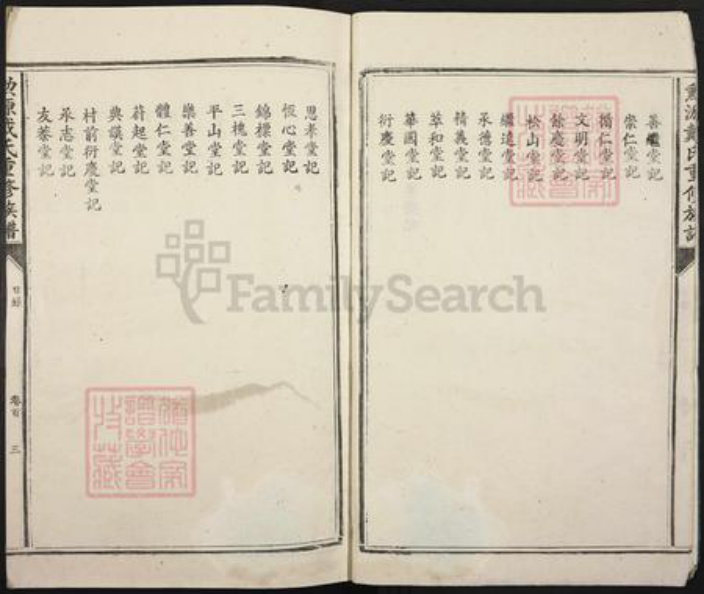 善繼堂記
崇仁堂記
循仁堂記
文明堂記
餘慶堂記
松山堂記
繼遠堂記
承德堂記
精義堂記
萃和堂記
華園堂記
衍慶堂記
戴氏重修族譜
思孝堂記
恆心堂記
錦標堂記
三槐堂記
平山堂記
樂善堂記
體仁堂記
蔚起堂記
典謨堂記
村前衍慶堂記
承志堂記
友恭堂記
戴氏重修族譜
目錄
卷首
三
FamilySearch